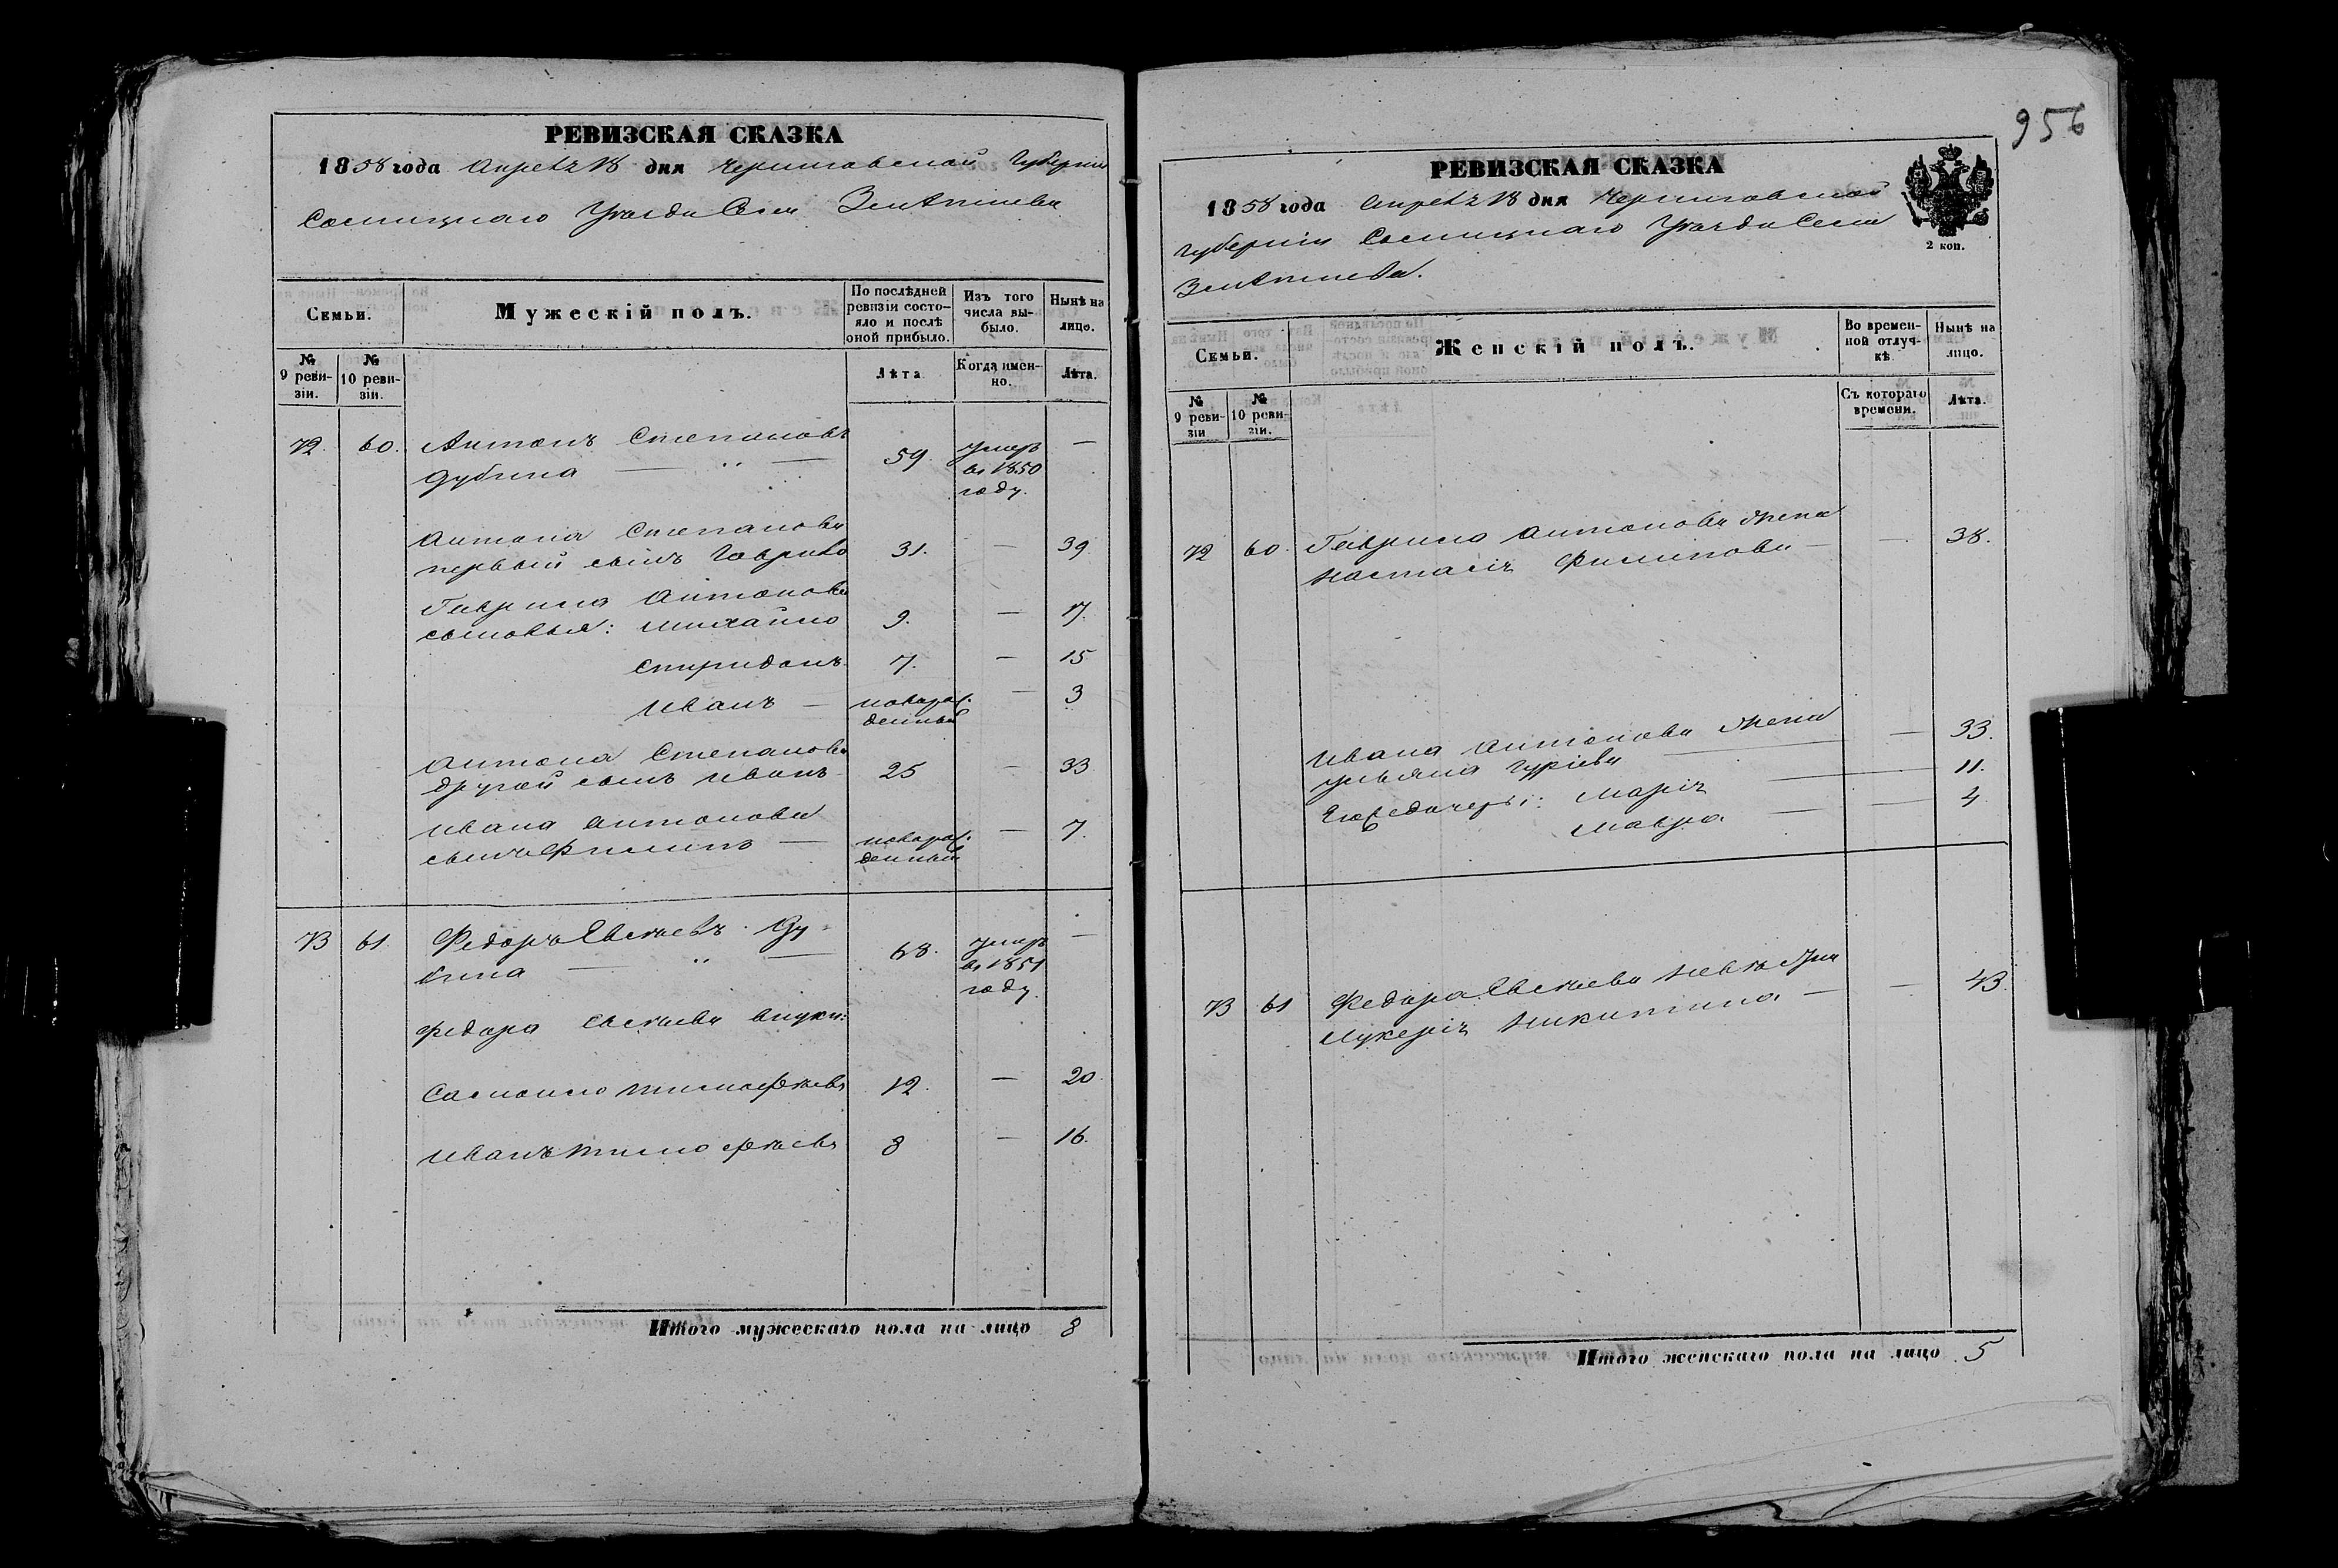 РЕВИЗСКАЯ СКАЗКА
1858 года Апреля 18 дня Черниговской Губернии
Сосницкаго Уезда Села
Семьи.
Мужескій полъ.
По послѣдней ревизіи состояло и послѣ оной прибыло.
Изъ того числа выбыло.
Нынѣ на лицо.
№ 9 ревизіи.
№ 10 ревизіи.
Лѣта
Когда именно.
Лѣта.
72. 60. Антонъ Степановъ
Дубина 59. умеръ въ 1850 году. —
Антона Степанова
первый сынъ Гаврило 31. — 39
Гаврила Антонова
сыновья: Михайло 9. — 17.
Спиридонъ 7. — 15
Иванъ — новорожденный — 3
Антона Степанова
другой сынъ Иванъ 25 — 33
Ивана Антонова
сынъ Филипъ — новорожденный — 7.
73 61. Федоръ Евсѣевъ Ду-
бина 68. умеръ въ 1851 году. —
Федора Евсѣева внуки:
Самойло Тимофѣевъ 12. — 20
Иванъ Тимофѣевъ 8 — 16.
Итого мужескаго пола на лицо 8
956
РЕВИЗСКАЯ СКАЗКА
1858 года Апреля 18 дня Черниговской
Губерніи Сосницкаго Уезда Села
2 коп.
Семьи.
Женскій полъ.
Во временной отлучкѣ.
Нынѣ на лицо.
№ 9 ревизіи
№ 10 ревизіи.
Съ котораго времени.
Лѣта.
72 60. Гаврила Антонова жена
Настасія Филипова — — 38.
Ивана Антонова жена
Ульяна Гуріева — 33.
Его дочери: Марія — 11.
Мавра — — 4
73 61 Федора Евсѣева невѣстка
Лукерія Никитина — — 43.
Итого женскаго пола на лицо 5